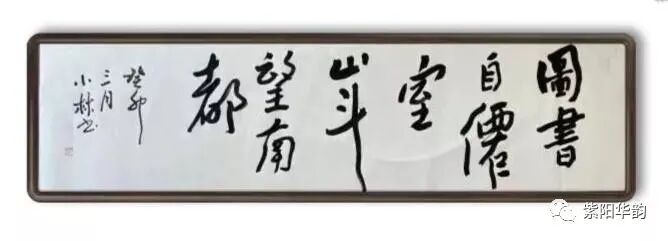 圖書
自僊
室
山斗
望南
都
癸卯
三月
小林书
紫阳华韵